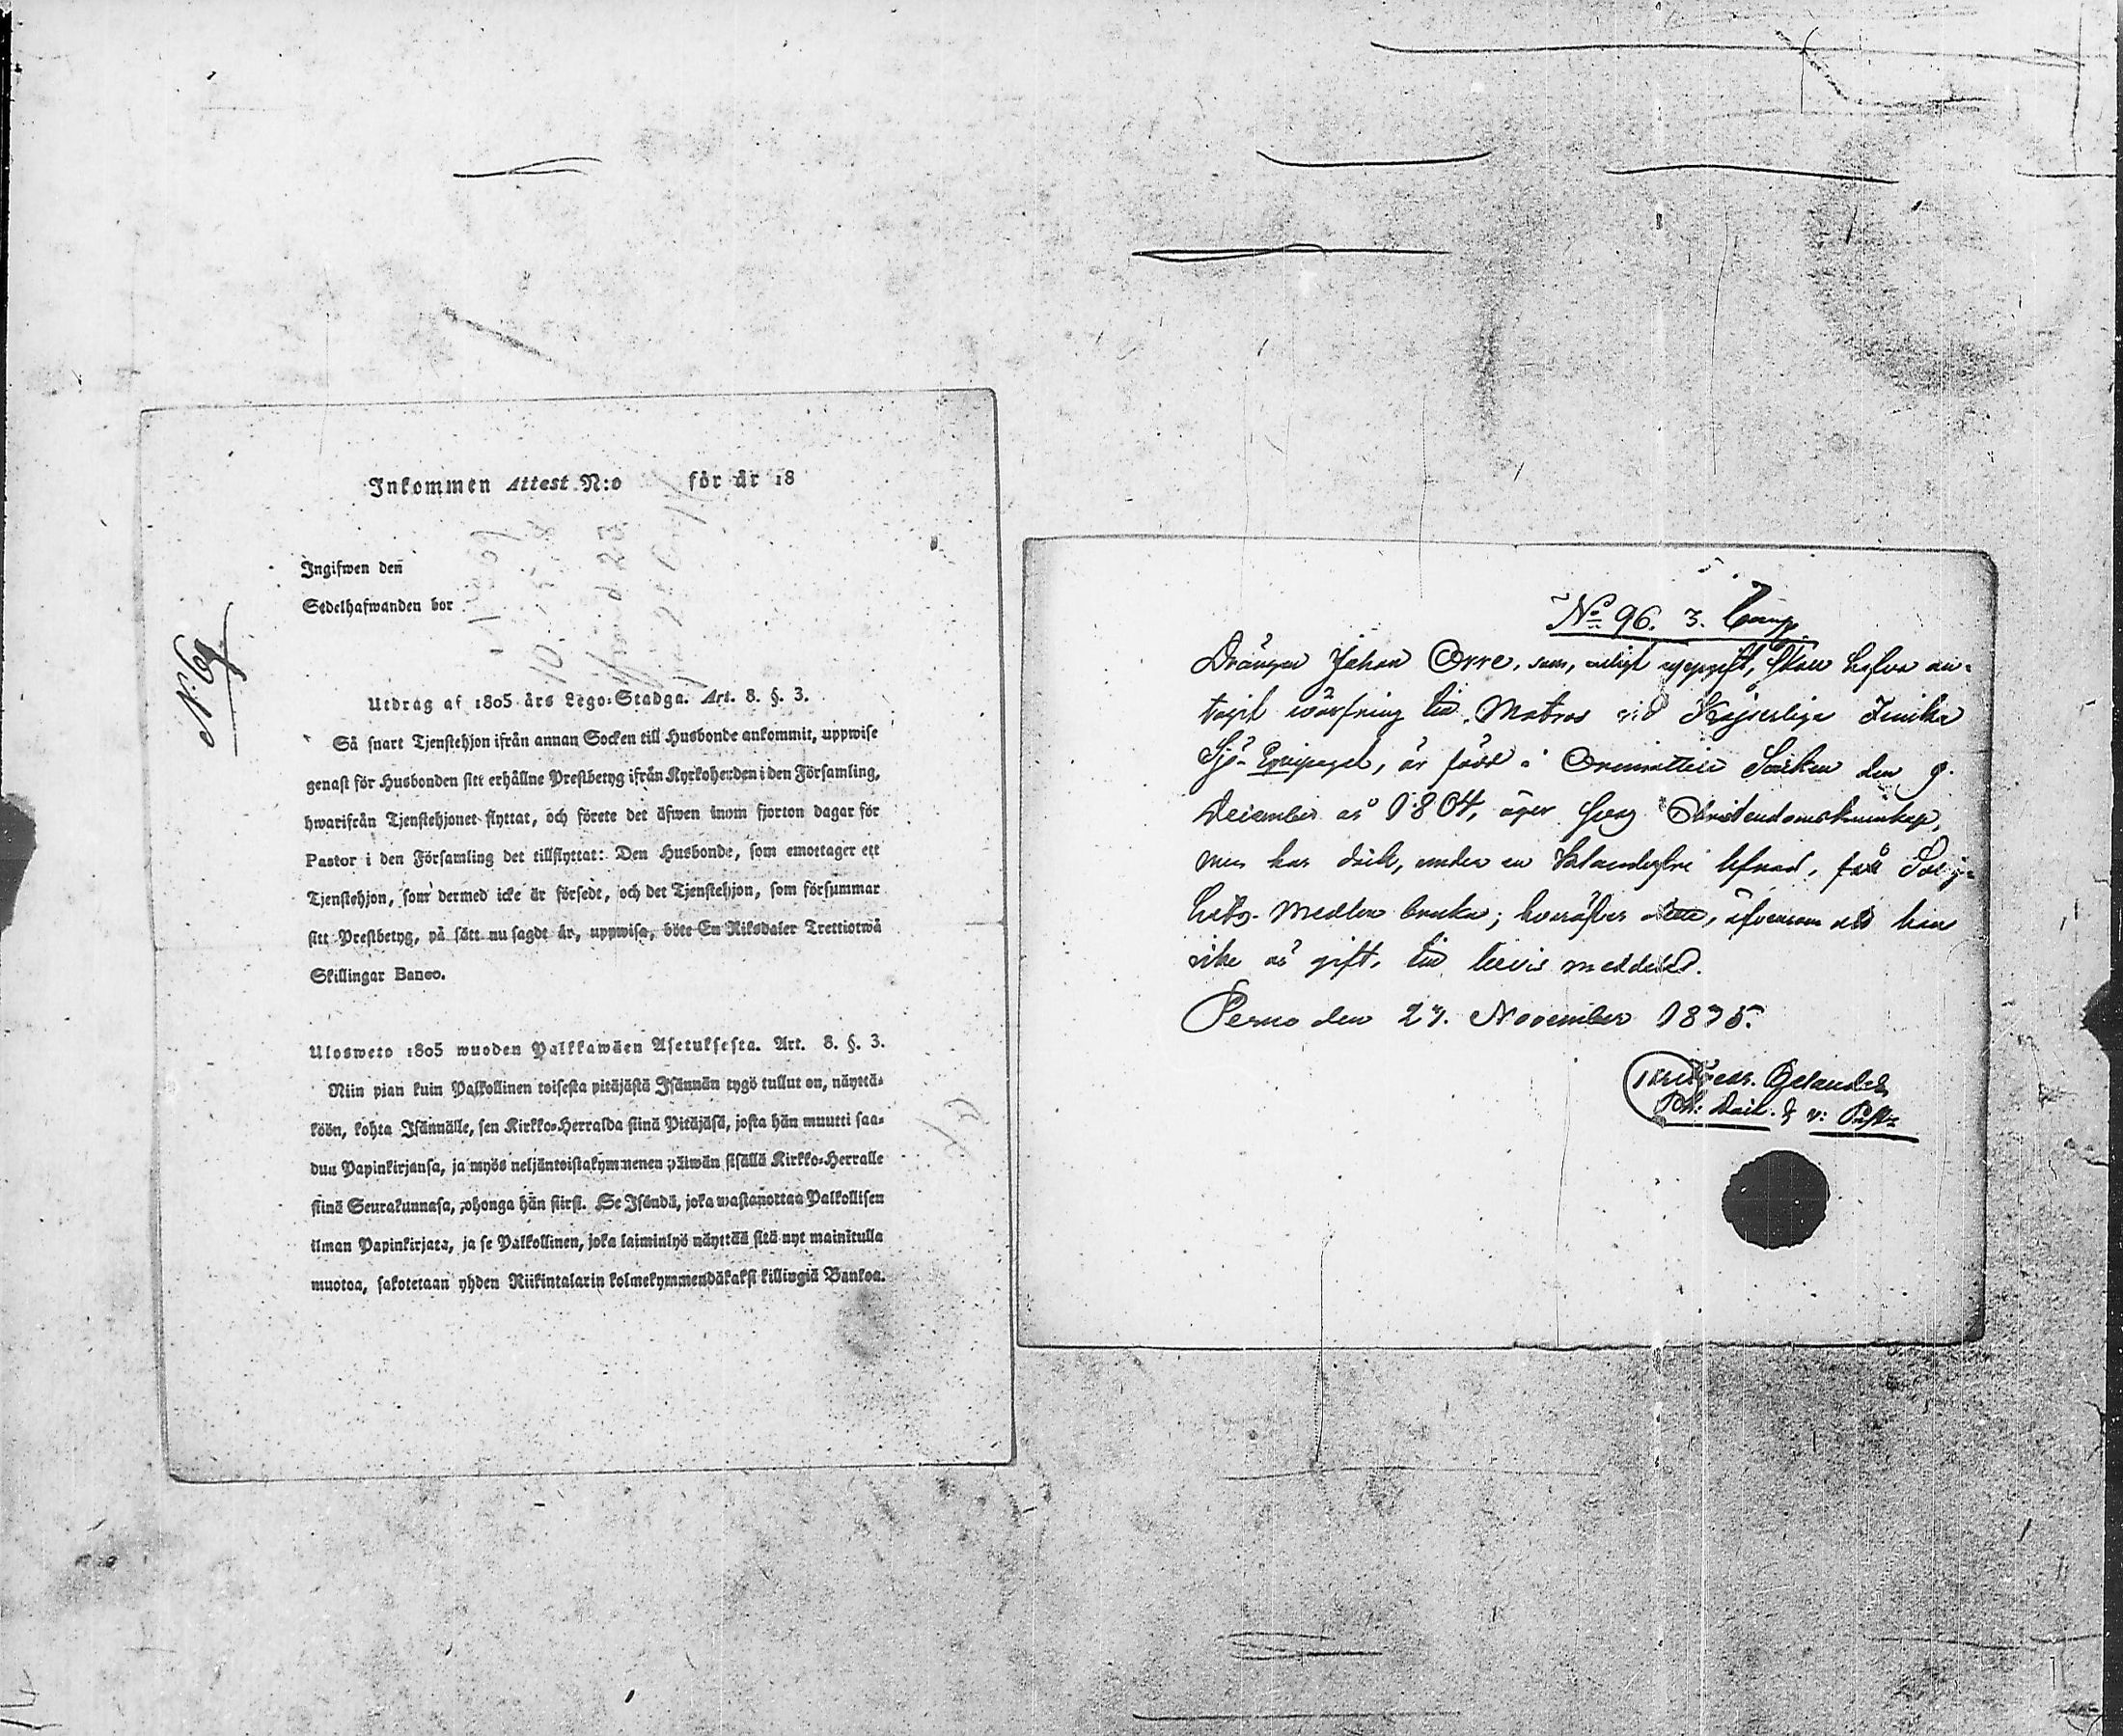 Inkommen Attest N:o för år 18
Ingifwen den
Sedelhafwanden bor
Utdrag af 1805 års Lego-Stadga. Art. 8. §. 3.
Så snart Tjenstehjon ifrån annan Socken till Husbonde ankommit, uppwise
genast för Husbonden sitt erhållne Prestbetyg ifrån Kyrkoherden i den Församling,
hwarifrån Tjenstehjonet flyttat, och förete det äfwen inom fjorton dagar för
Pastor i den Församling det tillflyttat: Den Husbonde, som emottager ett
Tjenstehjon, som dermed icke är försedt, och det Tjenstehjon, som försummar
sitt Prestbetyg, på sätt nu sagdt är, uppwisa, böte En Riksdaler Trettiotwå
Skillingar Banco.
Ulosweto 1805 wuoden Palkkawäen Asetuksesta. Art. 8. §. 3.
Niin pian kuin Palkollinen toisesta pitäjästä Isännän tygö tullut on, näyttä-
köön, kohta Isännälle, sen Kirkko-Herralda siinä Pitäjäsä, josta hän muutti saa-
dun Papinkirjansa, ja myös neljäntoistakymmenen päiwän sisällä Kirkko-Herralle
siinä Seurakunnasa, johonga hän siirsi. Se Isändä, joka wastanottaa Palkollisen
ilman Papinkirjata, ja se Palkollinen, joka laiminlyö näyttää sitä nyt mainitulla
muotoa, sakotetaan yhden Riikintalarin kolmekymmendäkaksi killingiä Bankoa.
No 96. 3. Comp
Drängen Johan Orre, som, enligt uppgift, skall hafva an-
tagit värfning till Matros vid Kejserliga Finska
Sjö-Equipaget, är född i Orimattila Socken den 9.
December år 1804, äger svag Christendomskunskap,
men har dock, under en lefnad, få Salig-
hets-Medlen bruka; hvaröfver detta, äfvensom att han
icke är gift, till bevis meddelas.
Perno den 27. November 1835.
Gelander